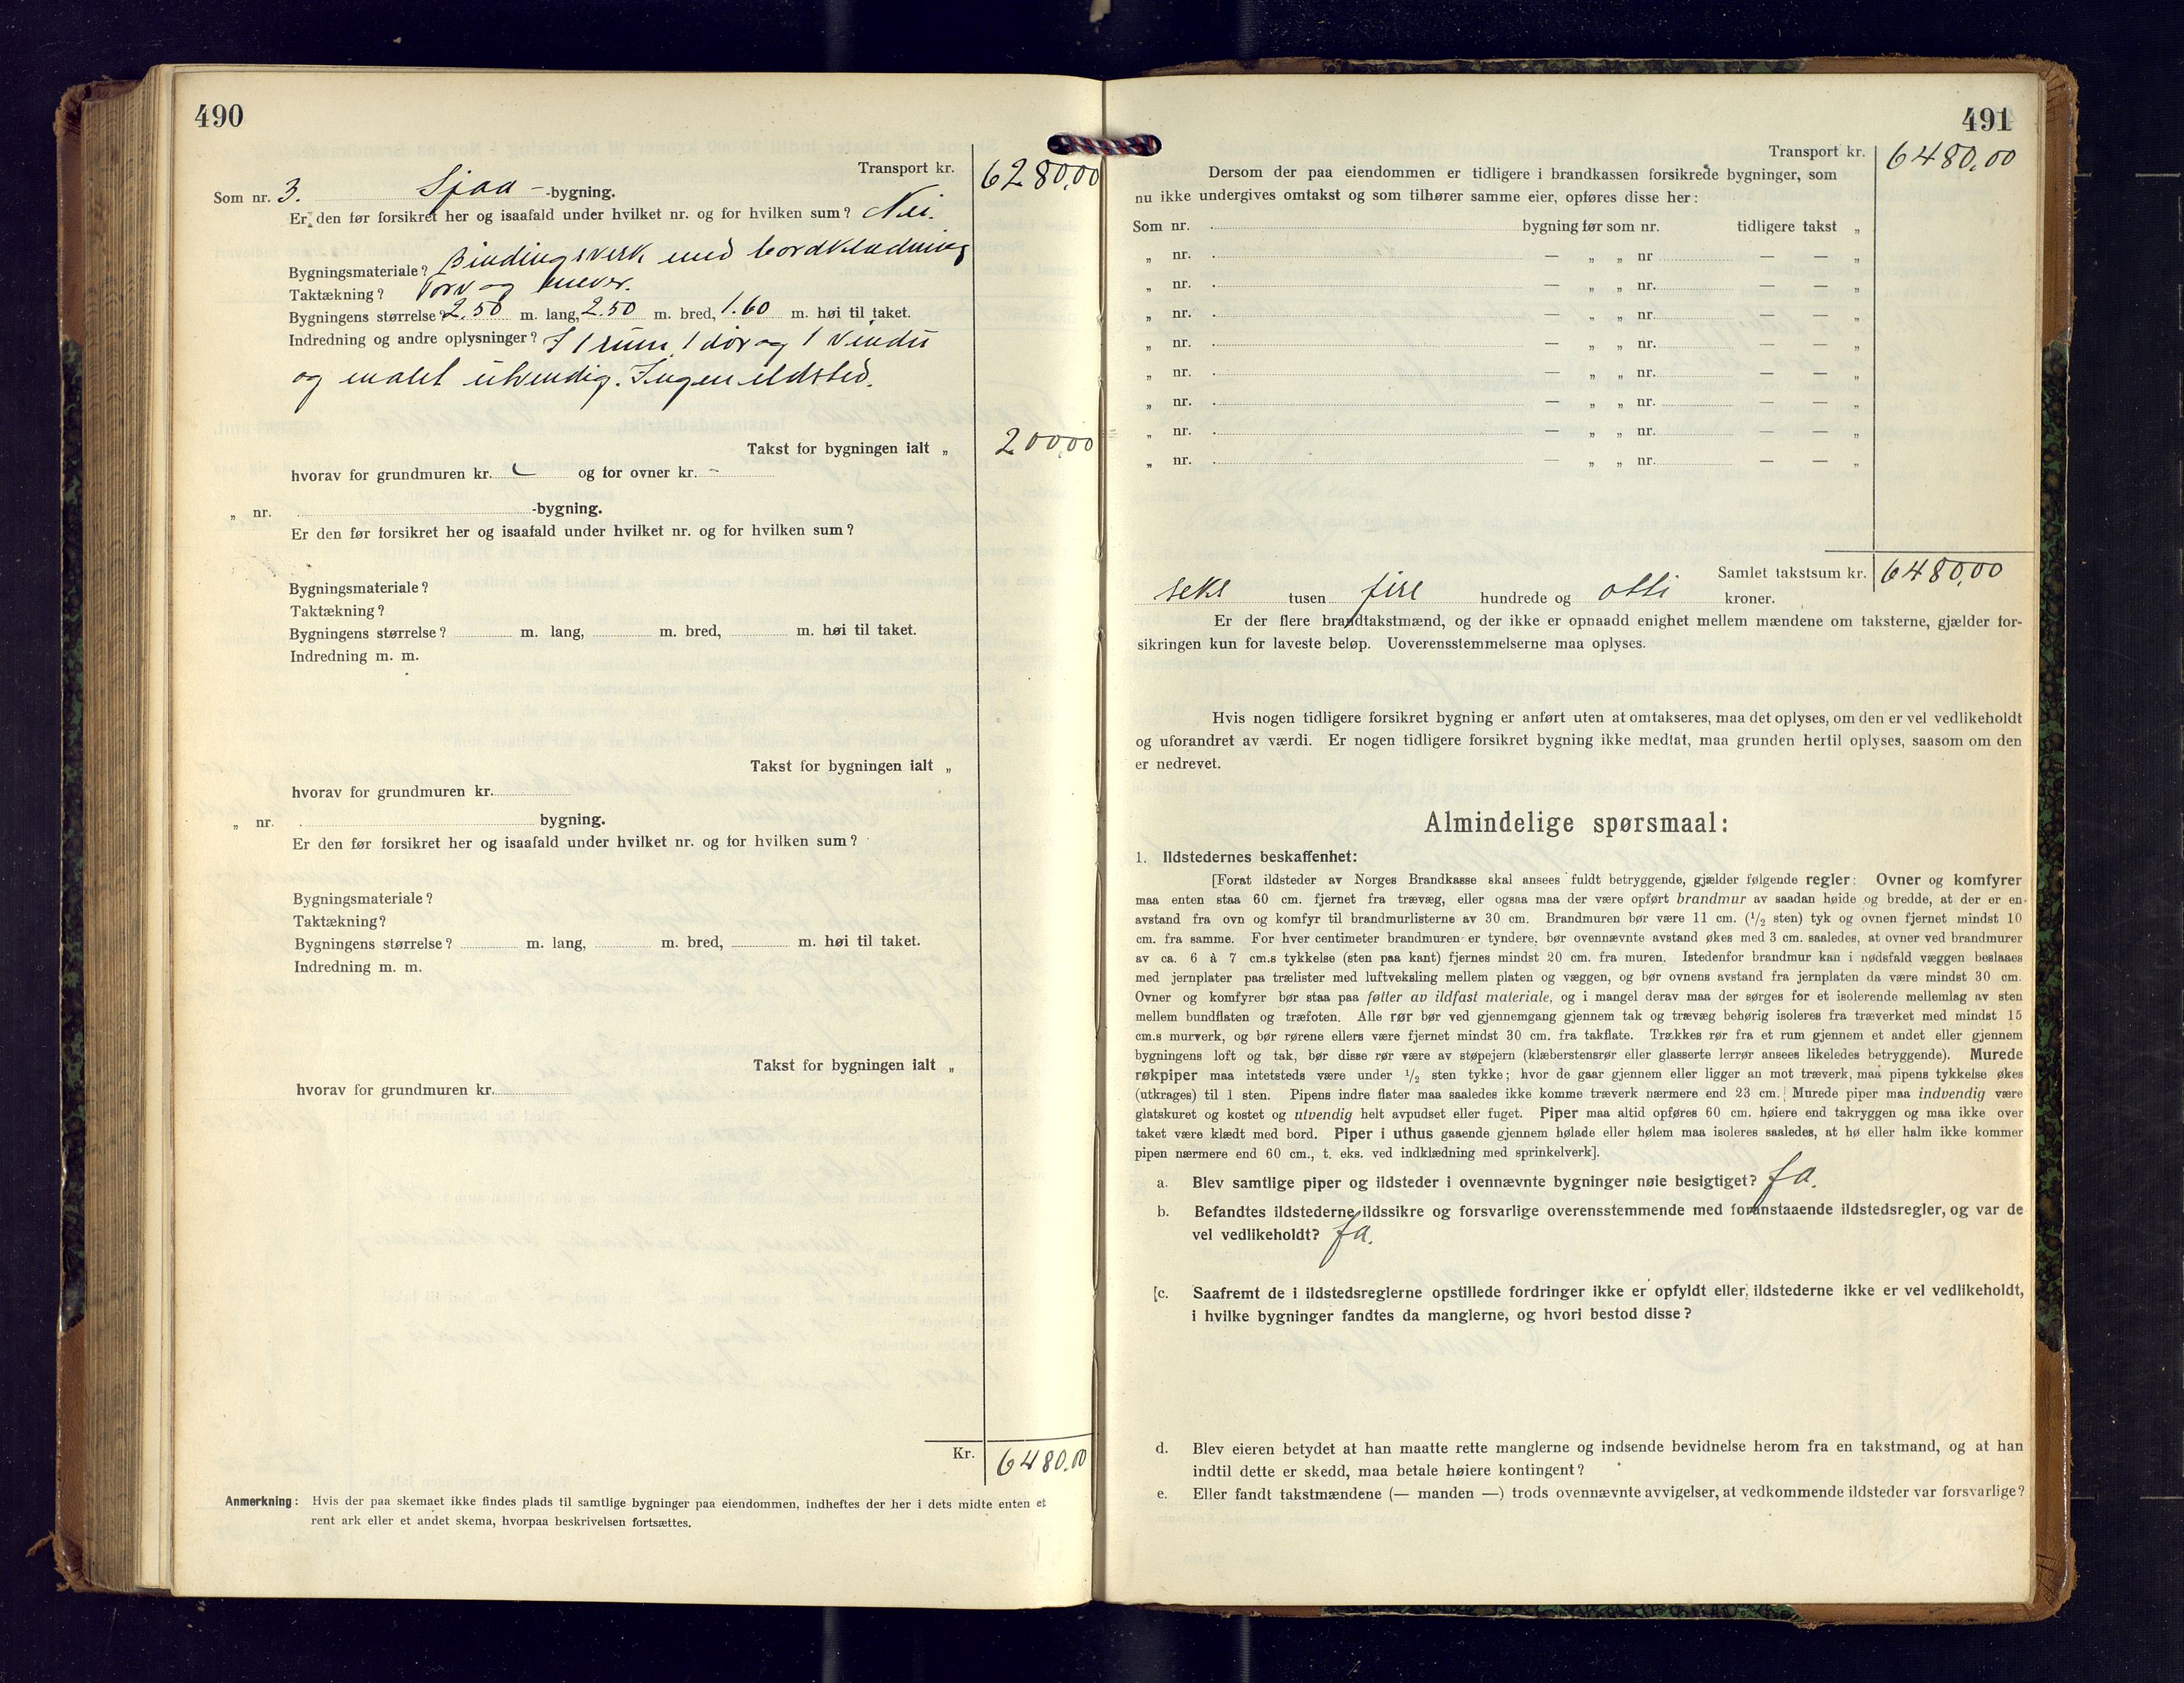 490
Transport kr. 6280,00
Som nr. 3. Sjaa - -bygning.
Er den før forsikret her og isaafald under hvilket nr. og for hvilken sum? Nei.
Bygningsmateriale? Bindingsverk med bordklædning
Taktækning? Torv og never.
Bygningens størrelse? 2.50 m. lang, 2.50 m. bred, 1.60 m. høi til taket.
Indredning og andre oplysninger? I 1 rum, 1 dør og 1 vindu
og malet utvendig. Ingen ildsted.
Takst for bygningen ialt „ 200,00
hvorav for grundmuren kr. og for ovner kr. -
„ nr. -bygning.
Er den før forsikret her og isaafald under hvilket nr. og for hvilken sum?
Bygningsmateriale?
Taktækning?
Bygningens størrelse? m. lang, m. bred, m. høi til taket.
Indredning m. m.
Takst for bygningen ialt „
hvorav for grundmuren kr.
„ nr. bygning.
Er den før forsikret her og isaafald under hvilket nr. og for hvilken sum?
Bygningsmateriale?
Taktækning?
Bygningens størrelse? m. lang, m. bred, m. høi til taket.
Indredning m. m.
Takst for bygningen ialt „
hvorav for grundmuren kr.
Kr. 6480,00
Anmerkning: Hvis der paa skemaet ikke findes plads til samtlige bygninger paa eiendommen, indheftes der her i dets midte enten et
rent ark eller et andet skema, hvorpaa beskrivelsen fortsættes.
491
Transport kr. 6480,00
Dersom der paa eiendommen er tidligere i brandkassen forsikrede bygninger, som
nu ikke undergives omtakst og som tilhører samme eier, opføres disse her:
Som nr. bygning før som nr. tidligere takst „
„ nr. — „ „ nr — — „
„ nr. — „ „ nr. — — „
„ nr. — „ „ nr. — — „
„ nr. — „ „ nr. — — „
„ nr. — „ „ nr. — — „
„ nr. — „ „ nr. — — „
„ nr. — „ „ nr. — — „
„ nr. — „ „ nr. — — „
Samlet takstsum kr. 6480,00
seks tusen fire hundrede og otti kroner.
Er der flere brandtakstmænd, og der ikke er opnaadd enighet mellem mændene om taksterne, gjælder for-
sikringen kun for laveste beløp. Uoverensstemmelserne maa oplyses.
Hvis nogen tidligere forsikret bygning er anført uten at omtakseres, maa det oplyses, om den er vel vedlikeholdt
og uforandret av værdi. Er nogen tidligere forsikret bygning ikke medtat, maa grunden hertil oplyses, saasom om den
er nedrevet.
Almindelige spørsmaal:
1. Ildstedernes beskaffenhet:
[Forat ildsteder av Norges Brandkasse skal ansees fuldt betryggende, gjælder følgende regler: Ovner og komfyrer
maa enten staa 60 cm. fjernet fra trævæg, eller ogsaa maa der være opført brandmur av saadan høide og bredde, at der er en
avstand fra ovn og komfyr til brandmurlisterne av 30 cm. Brandmuren bør være 11 cm. (1/2 sten) tyk og ovnen fjernet mindst 10
cm. fra samme. For hver centimeter brandmuren er tyndere, bør ovennævnte avstand økes med 3 cm. saaledes, at ovner ved brandmurer
av ca. 6 à 7 cm.s tykkelse (sten paa kant) fjernes mindst 20 cm. fra muren. Istedenfor brandmur kan i nødsfald væggen beslaaes
med jernplater paa trælister med luftveksling mellem platen og væggen, og bør ovnens avstand fra jernplaten da være mindst 30 cm.
Ovner og komfyrer bør staa paa føtter av ildfast materiale, og i mangel derav maa der sørges for et isolerende mellemlag av sten
mellem bundflaten og træfoten. Alle rør bør ved gjennemgang gjennem tak og trævæg behørig isoleres fra træverket med mindst 15
cm.s murverk, og bør rørene ellers være fjernet mindst 30 cm. fra takflate. Trækkes rør fra et rum gjennem et andet eller gjennem
bygningens loft og tak, bør disse rør være av støpejern (klæberstensrør eller glasserte lerrør ansees likeledes betryggende). Murede
røkpiper maa intetsteds være under 1/2 sten tykke; hvor de gaar gjennem eller ligger an mot træverk, maa pipens tykkelse økes
(utkrages) til 1 sten. Pipens indre flater maa saaledes ikke komme træverk nærmere end 23 cm. Murede piper maa indvendig være
glatskuret og kostet og utvendig helt avpudset eller fuget. Piper maa altid opføres 60 cm. høiere end takryggen og maa ikke over
taket være klædt med bord. Piper i uthus gaaende gjennem hølade eller hølem maa isoleres saaledes, at hø eller halm ikke kommer
pipen nærmere end 60 cm., t. eks. ved indklædning med sprinkelverk].
a. Blev samtlige piper og ildsteder i ovennævnte bygninger nøie besigtiget? Ja.
b. Befandtes ildstederne ildssikre og forsvarlige overensstemmende med foranstaaende ildstedsregler, og var de
vel vedlikeholdt? Ja.
[c. Saafremt de i ildstedsreglerne opstillede fordringer ikke er opfyldt eller ildstederne ikke er vel vedlikeholdt,
i hvilke bygninger fandtes da manglerne, og hvori bestod disse?
d. Blev eieren betydet at han maatte rette manglerne og indsende bevidnelse herom fra en takstmand, og at han
indtil dette er skedd, maa betale høiere kontingent?
e. Eller fandt takstmændene (— manden —) trods ovennævnte avvigelser, at vedkommende ildsteder var forsvarlige?